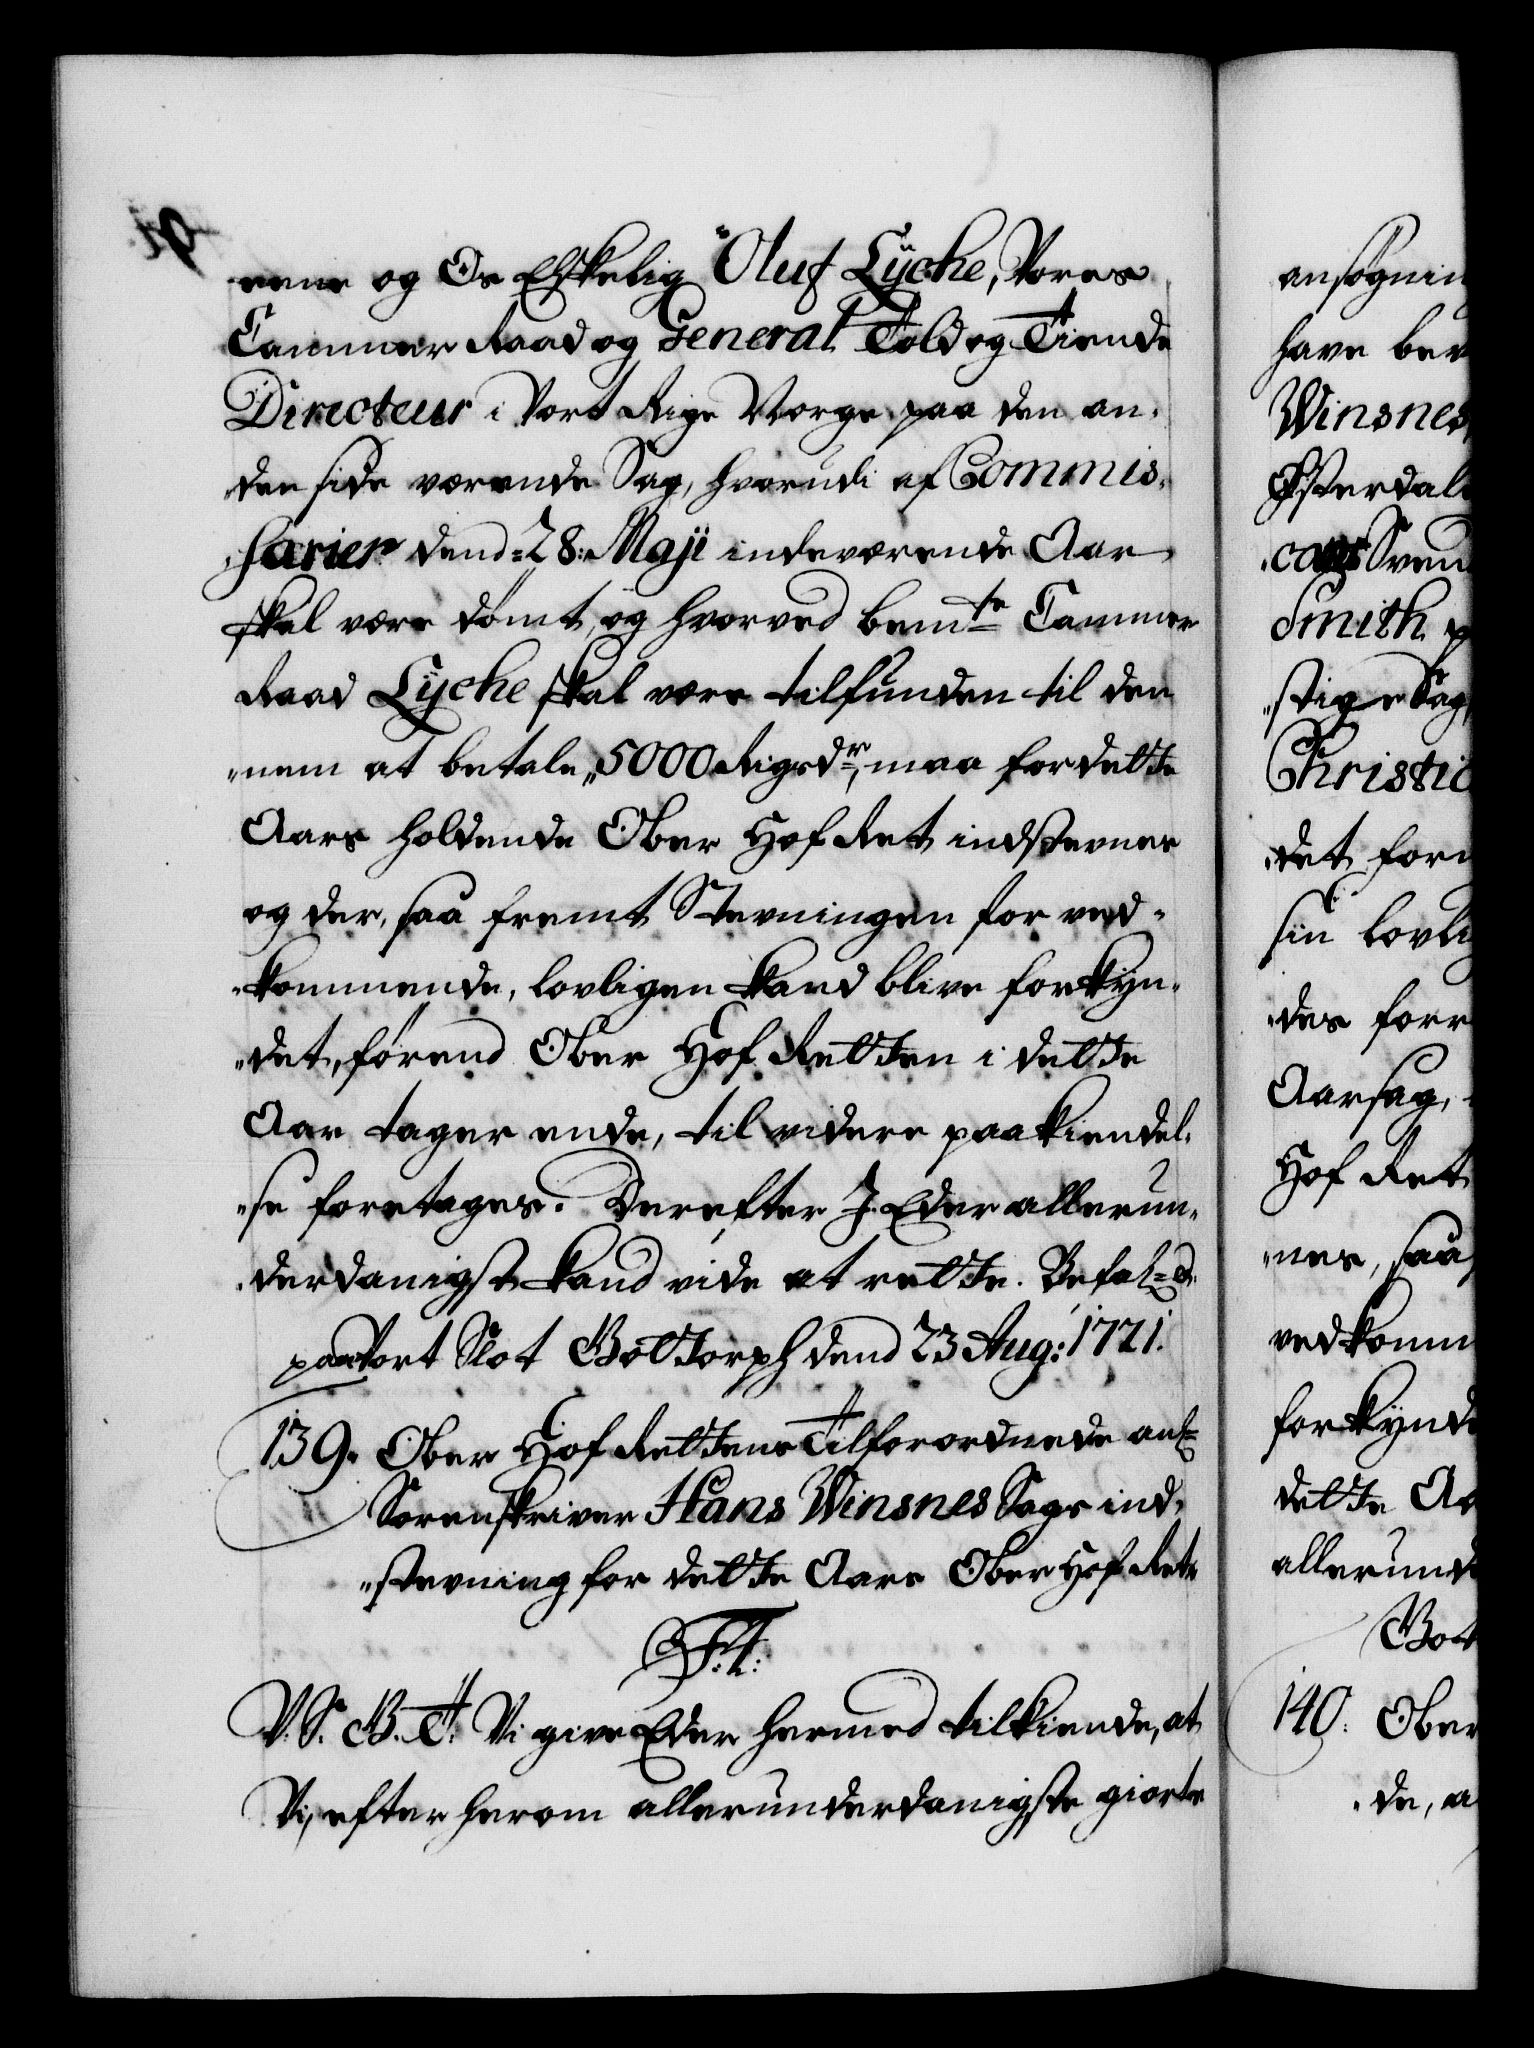 eene og Os Elskelig Oluf Lÿche, Vores
Cammer Raad og General Told og Tiende
Directeur i Vort Rige Norge paa den an-
den side værende Sag, hvorudi af Commis-
sarier dend 28: Maji indeværende Aar
skal være dømt, og hvorved bemte Cammer
Raad Lÿche skal være tilfunden til den-
nem at betale 5000 Rigsdr, maa for dette
Aars holdende Ober Hof Ret indstevnes
og der, saa fremt Stevningen for ved-
kommende, lovligen kand blive forkyn-
det, førend Ober Hof Retten i dette
Aar tager ende, til videre paakiendel-
se foretages. Derefter I Eder allerun-
derdanigst kand vide at rette. Befal=
paa Vort Slot Gottorph dend 23 Aug: 1721.
139. Ober Hof Rettens Tilforordnede anl=
Sorenskriver Hans Winsnes Sags ind-
stevning for dette Aars Ober Hof Ret
F. 4.
V. S. G. T. Vi give Eder hermed tilkiende, at
Vi, efter herom allerunderdanigste giorte
ansøgnin
have bev
Winsnes
Østerdal
Svend
Smith p
stige Sag
Christi
det for
sin lovli
des for
Aarsag,
Hof Ret
nes, saa
vedkomm
forkynd
dette Aa
allerund
Got
140. Ober
de, a